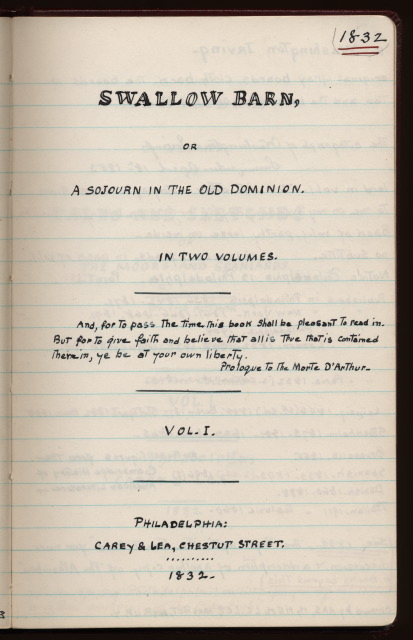 1832
SWALLOW BARN,
OR
A SOJOURN IN THE OLD DOMINION.
IN TWO VOLUMES.
And, for to pass the time this book shall be pleasant to read in.
But for to give faith and believe that all is true that is contained
therein, ye be at your own liberty.
Prologue to the Morte D'Arthur-
VOL. I.
PHILADELPHIA:
CAREY & LEA, CHESTUT STREET.
..........
1832-